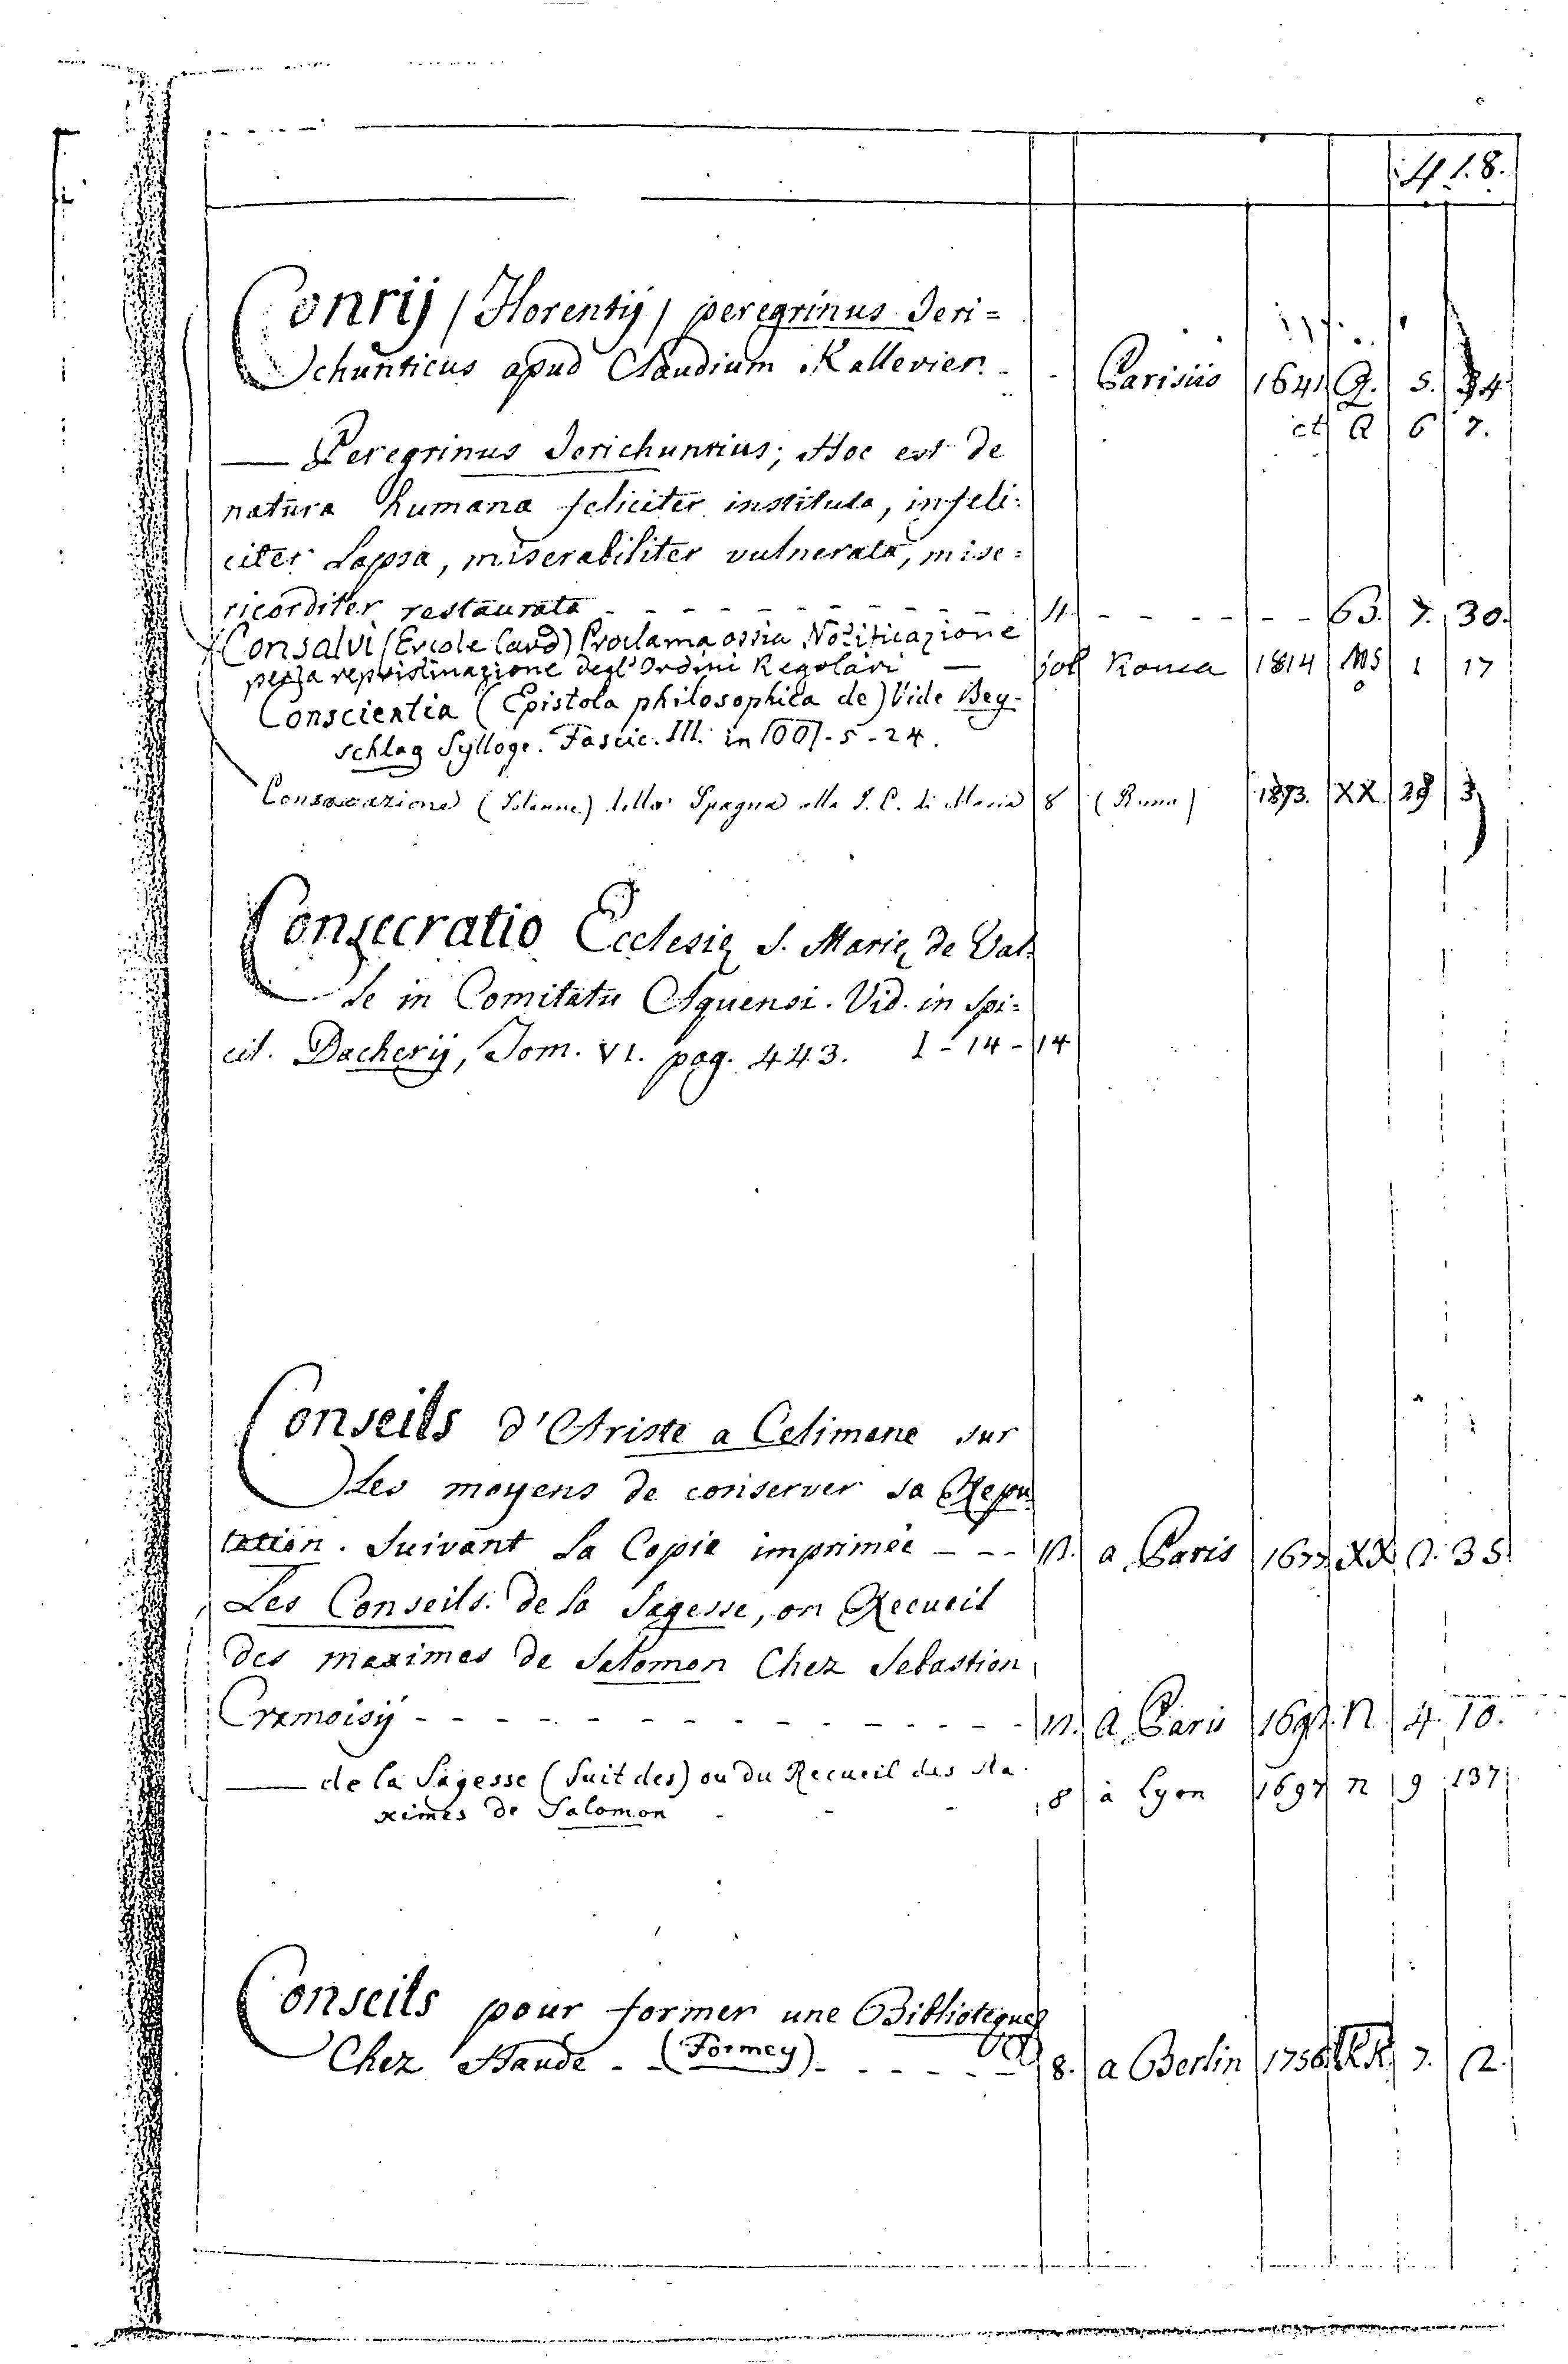 418.
Conrij (Florentij) peregrinus Jeri=
chunticus apud Claudium Kallevier. - - Parisiis 1641 Q. 5. 34
et Q 6 7.
— Peregrinus Jerichuntius; Hoc est de
natura humana feliciter instituta, infeli:
citer Lapsa, miserabiliter vulnerata, mise:
ricorditer restaurata - - - - - - - - - 4. - - - - - 63. 7. 30.
Consalvi (Ercole Card) Proclama ossia Notificazione
per la repristinazione degl'Ordini Regolari — fol Roma 1814 MS 1 17
Conscientia (Epistola philosophica de) Vide Bey-
schlag Sylloge. Fascic. III. in 100 - 5 - 24.
Consacrazione (Solenne) della Spagna alla S. C. di Maria 8 (Roma) 1893. XX. 29 3
Consecratio Ecclesię S. Marię de Val
le in Comitatu Aquensi. Vid. in Spi:
cil. Dacherij, Tom. VI. pag. 443. I - 14 - 14
Conseils d'Ariste a Celimene sur
Les moyens de conserver sa Repu
tation. Suivant La Copie imprimée - - - 12. a Paris 1677 XX 2. 35
Les Conseils de la Sagesse, ou Recueil
des maximes de Salomon Chez Sebastien
Cramoisij - - - - - - - - - - - - - 12. a Paris 1697. n 4. 10.
— de la Sagesse (Suit des) ou du Recueil des Ma-
ximes de Salomon - - - 8 à Lyon 1697 n 9 137
Conseils pour former une Biblioteque
Chez Haude - - (Formey) - - - - - 8. a Berlin 1756 KK 7. 12.